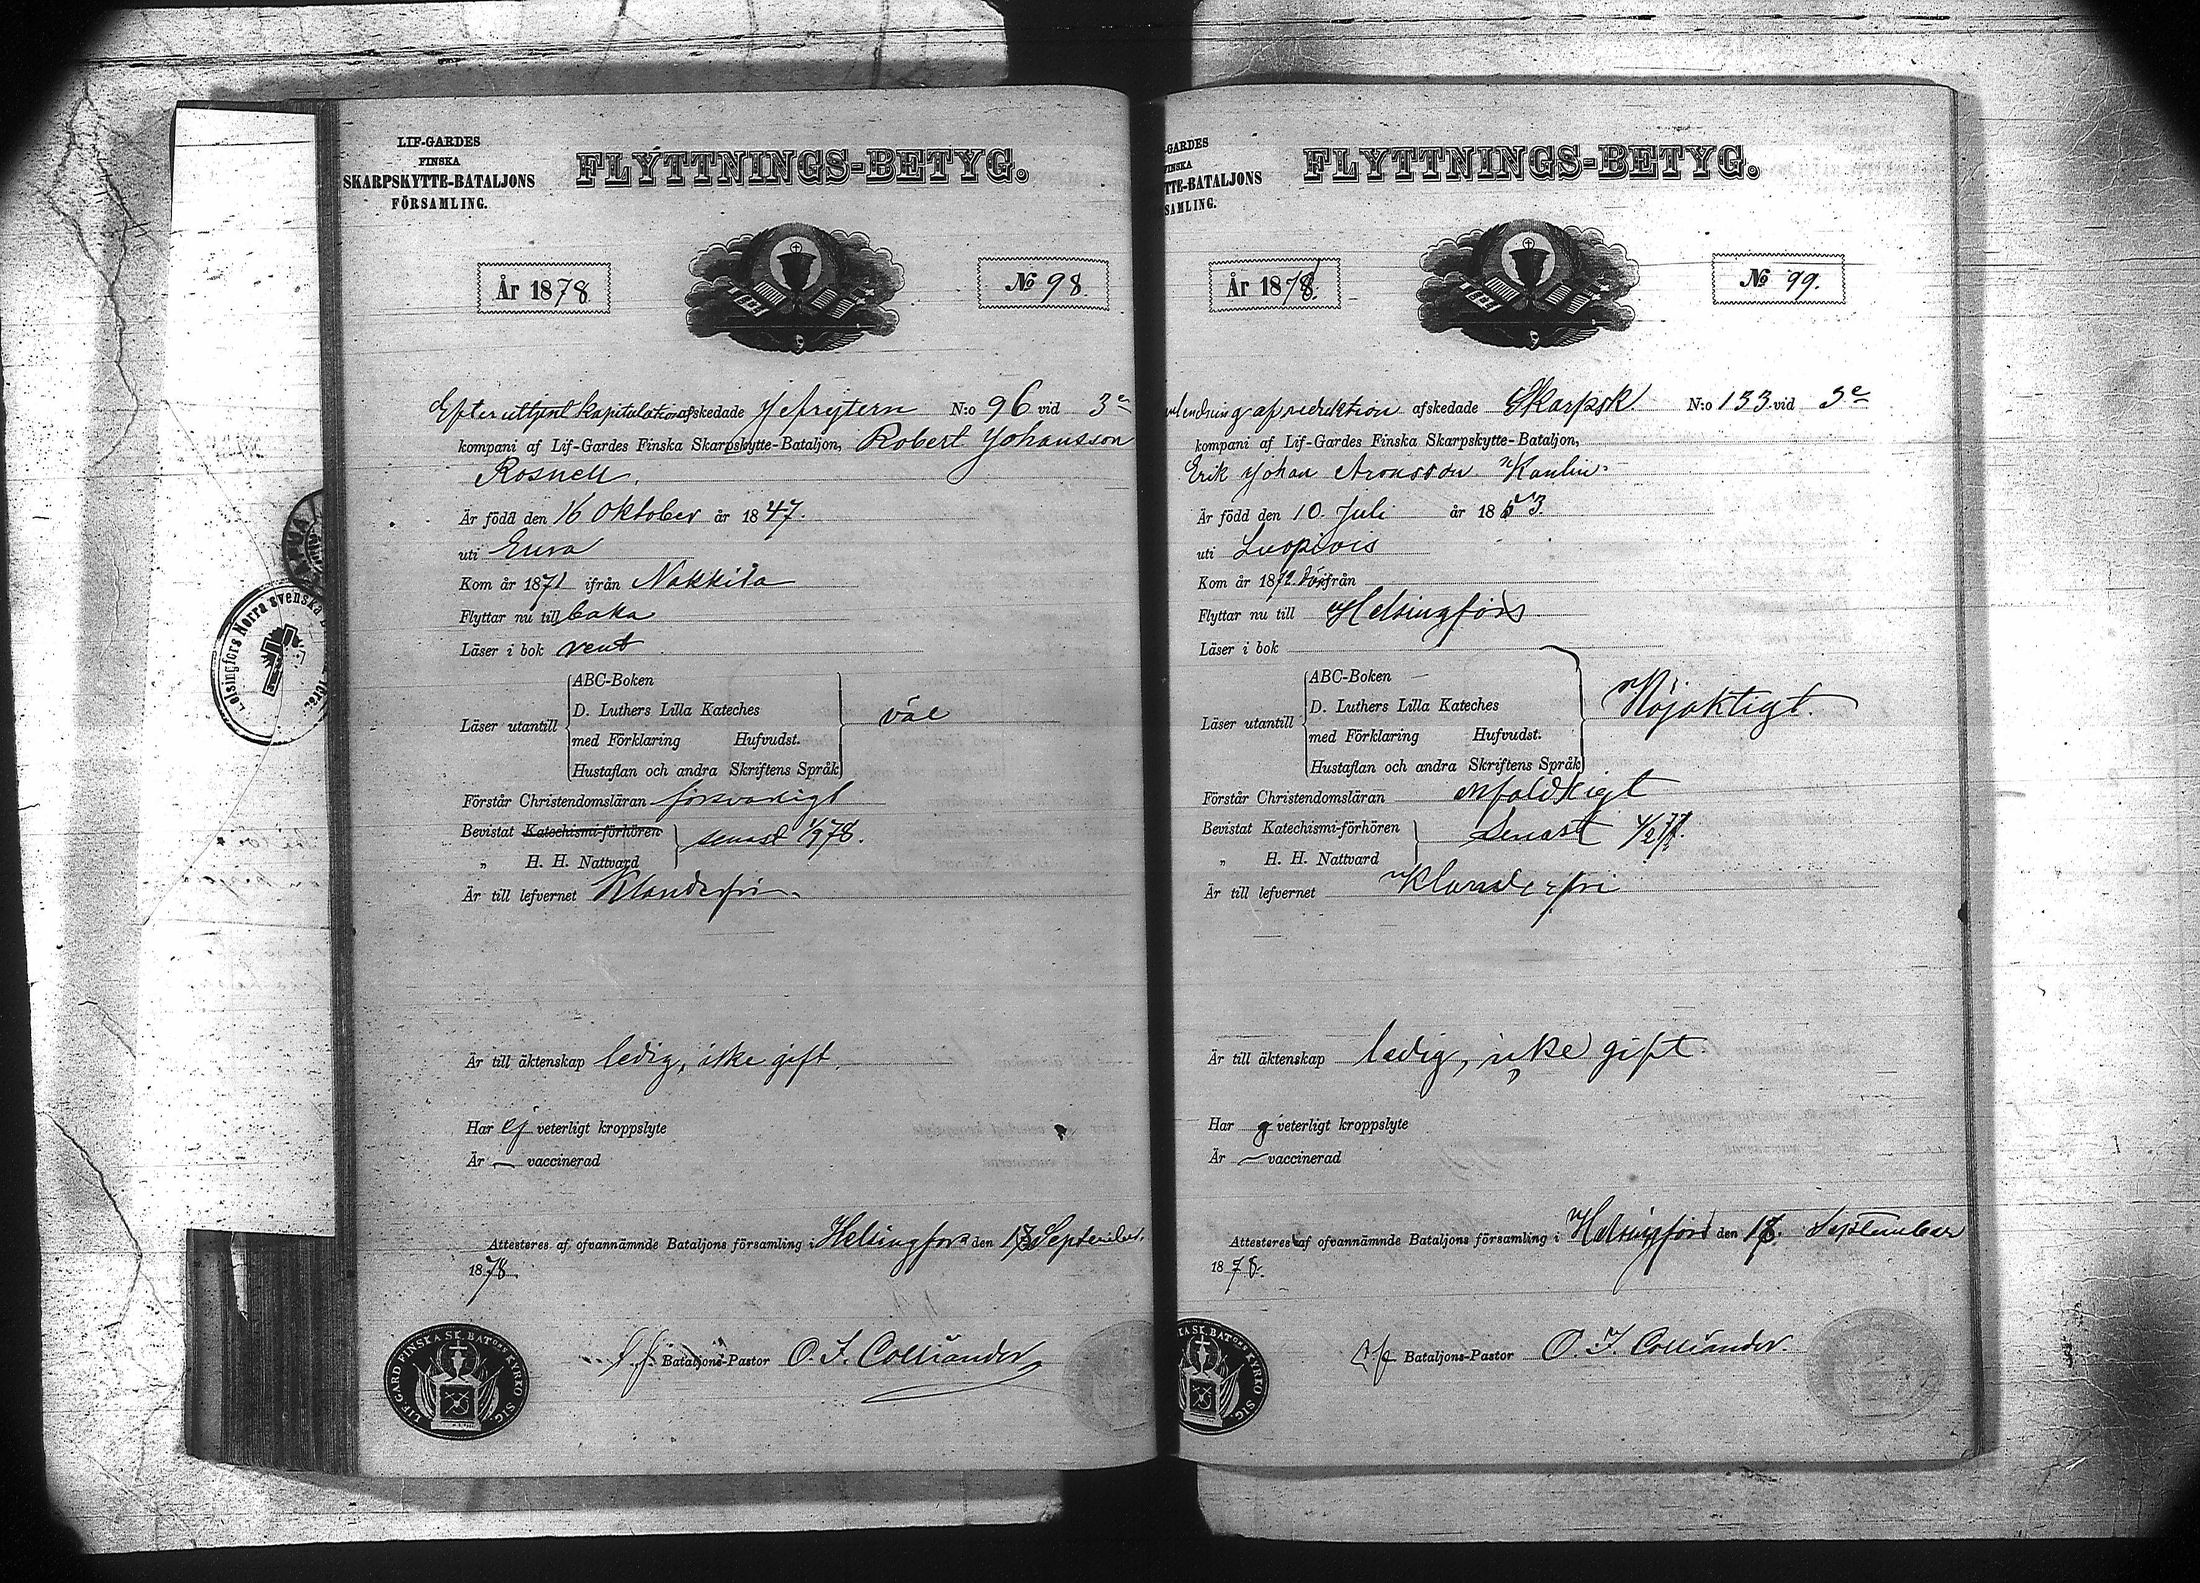 LIF-GARDES
FINSKA
SKARPSKYTTE-BATALJONS
FÖRSAMLING.
FLYTTNINGS-BETYG.
År 1878.
No 98.
Efter uttjent kapitulation afskedade Gefrejtern N:o 96 vid 3e
kompani af Lif-Gardes Finska Skarpskytte-Bataljon, Robert Johansson
Rosnell.
Är född den 16 Oktober år 1847.
uti Eura
Kom år 1871 ifrån Nakkila
Flyttar nu till
Läser i bok rent
ABC-Boken
D. Luthers Lilla Kateches
Läser utantill med Förklaring Hufvudst. väl
Hustaflan och andra Skriftens Språk
Förstår Christendomsläran försvarligt
Bevistat Katechismi-förhören senast 1/9 78.
„ H. H. Nattvard
Är till lefvernet Klanderfri
Är till äktenskap ledig, icke gift.
Har ej veterligt kroppslyte
Är — vaccinerad
Attesteras af ofvannämnde Bataljons församling i Helsingfors den September
1878.
Bataljons-Pastor O. F. Colliander
LIF-GARD FINSKA SK. BATONS KYRKO SIG.
Helsingfors Norra svenska
-GARDES
TTE-BATALJONS
SAMLING.
FLYTTNINGS-BETYG.
År 1878.
No 99.
af reduktion afskedade Skarpsk. N:o 133 vid 3e
kompani af Lif-Gardes Finska Skarpskytte-Bataljon,
Erik Johan Aronsson Kanlin.
Är född den 10. Juli år 1853.
uti Luopiois
Kom år 1872 ifrån
Flyttar nu till Helsingfors
Läser i bok
ABC-Boken
D. Luthers Lilla Kateches
Läser utantill med Förklaring Hufvudst. Nöjaktigt.
Hustaflan och andra Skriftens Språk
Förstår Christendomsläran enfaldkigt
Bevistat Katechismi-förhören Senast 4/2 77.
„ H. H. Nattvard
Är till lefvernet Klanderfri
Är till äktenskap ledig, icke gift.
Har veterligt kroppslyte
Är — vaccinerad
Attesteras af ofvannämnde Bataljons församling i Helsingfors den 18. September
1878.
Bataljons-Pastor O. F. Colliander.
KA SK. BATONS KYRKO SIG.